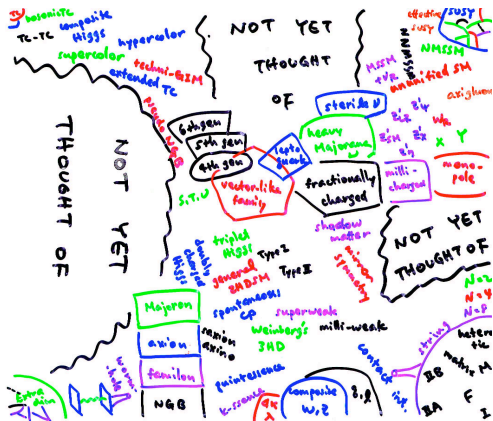 bosonic TC
TC-TC
composite
Higgs
hypercolor
supercolor
techni-GIM
extended TC
pseudo NGB
NOT YET
THOUGHT
OF
effective
SUSY
SUSY
NMSSM
NNMSSM
MSSM
+νR
ununified SM
axigluon
NOT YET
THOUGHT OF
6th gen
5th gen
4th gen
lepto
quark
sterile ν
heavy
Majorana
vector-like
family
fractionally
charged
milli-
charged
mono-
pole
WR
X Y
S.T.U
shadow
matter
mirror
symmetry
NOT YET
THOUGHT OF
doubly
charged
Higgs
triplet
Higgs
general
2HDSM
Type I
Type II
spontaneous
CP
superweak
Weinberg's
3HD
milli-weak
Majoron
axion
familon
NGB
saxion
axino
quintessence
k-essence
composite
W, Z
Extra
dim
worm-
hole
contact
string
N=2
N=4
N=8
heterotic
matrix M
IIB
IIA
F
I